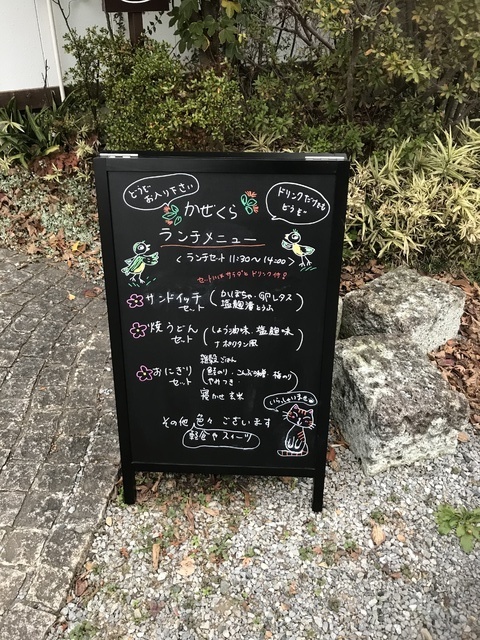 どうぞ
お入り下さい
ドリンクだけでも
どうぞ
かぜくら
ランチメニュー
＜ランチセット 11:30〜14:00＞
セットにはサラダとドリンク付き
サンドイッチ
セット
(かぼちゃ・卵レタス
塩麹漬とうふ
焼うどん
セット
(しょう油味、塩麹味
ナポリタン風
雑穀ごはん
おにぎり
セット
(鮭のり・こんぶ・梅のり
やみつき
寝かせ玄米
いらっしゃいませ
その他 色々 ございます
軽食やスイーツ